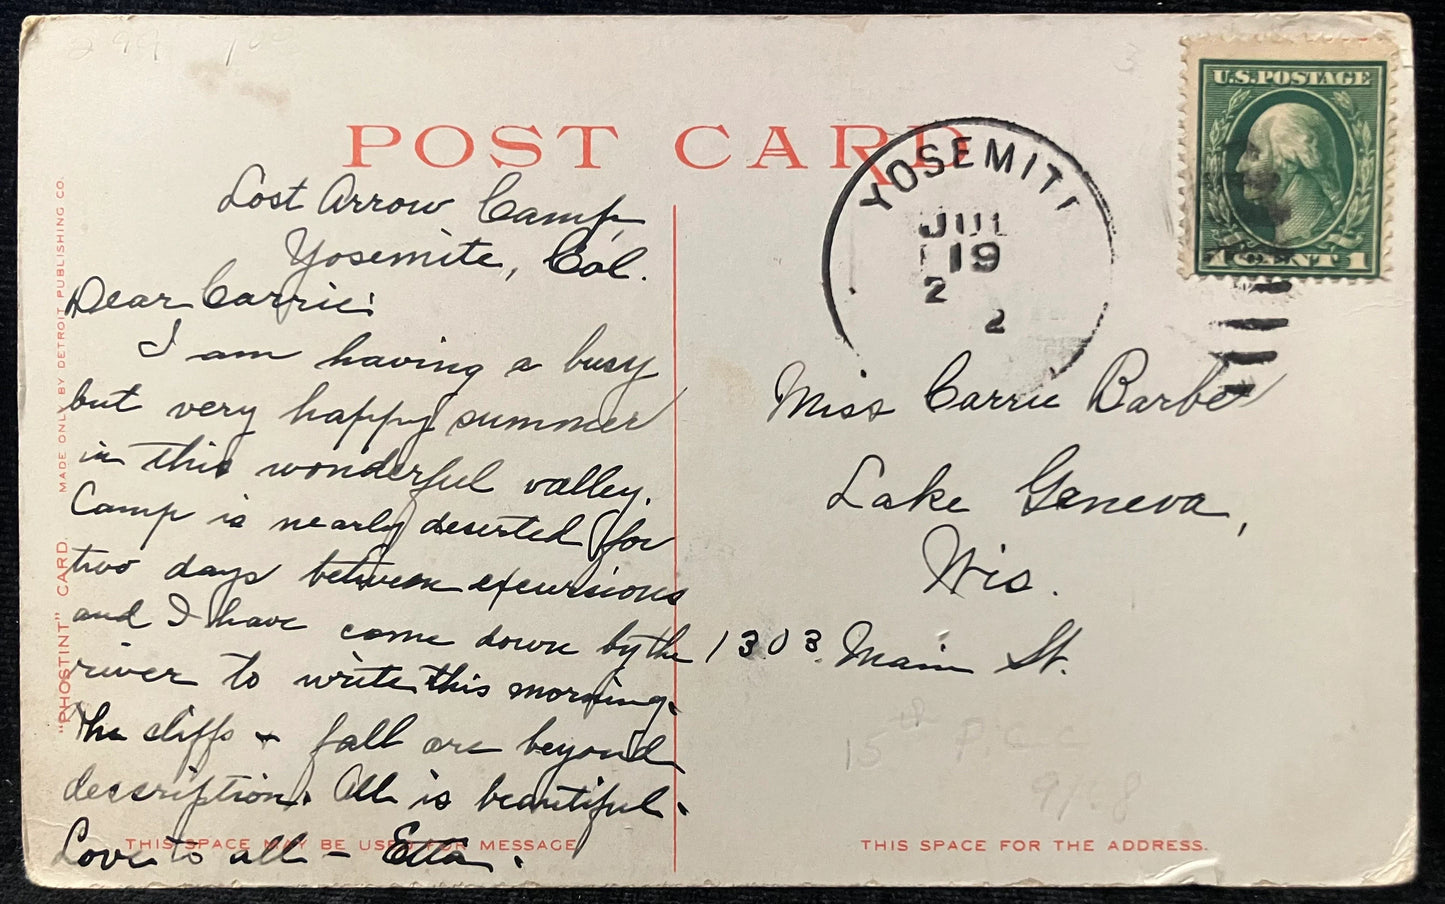 POST CARD
U.S. POSTAGE
1 CENT 1
YOSEMIT
JUL
19
2
2
Lost Arrow Camp,
Yosemite, Cal.
Dear Carrie:
I am having a busy
but very happy summer
in this wonderful valley.
Camp is nearly deserted for
two days between excursions
and I have come down by the
river to write this morning.
The cliffs + fall are beyond
description. All is beautiful.
Love to all – Etta.
Miss Carrie Barber
Lake Geneva,
Wis.
1303 Main St.
15th P.C.C
9/68
299
"PHOSTINT" CARD. MADE ONLY BY DETROIT PUBLISHING CO.
THIS SPACE MAY BE USED FOR MESSAGE
THIS SPACE FOR THE ADDRESS.